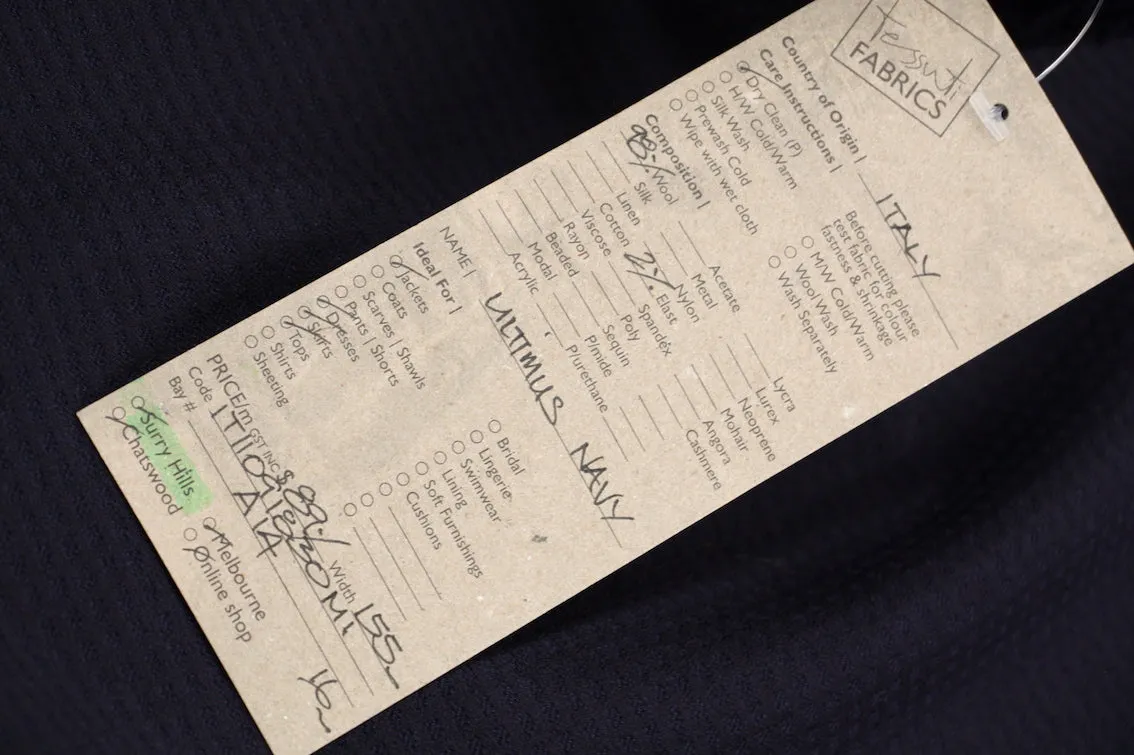 Tessuti
FABRICS
Country of Origin | ITALY
Care Instructions |
Dry Clean (P)
H/W Cold/Warm
Silk Wash
Prewash Cold
Wipe with wet cloth
Before cutting please
test fabric for colour
fastness & shrinkage
M/W Cold/Warm
Wool Wash
Wash Separately
Composition |
98% Wool
Silk
Linen
Cotton
Viscose
Rayon
Beaded
Modal
Acrylic
Acetate
Metal
Nylon
2% Elast
Spandex
Poly
Sequin
P/mide
P/urethane
Lycra
Lurex
Neoprene
Mohair
Angora
Cashmere
NAME | ULTIMUS NAVY
Ideal For |
Jackets
Coats
Scarves | Shawls
Pants | Shorts
Dresses
Skirts
Tops
Shirts
Sheeting
Bridal
Lingerie
Swimwear
Lining
Soft Furnishings
Cushions
PRICE/m GST INC $ 89.- Width 155
Code
Bay #
Surry Hills
Chatswood
Melbourne
Online shop
16